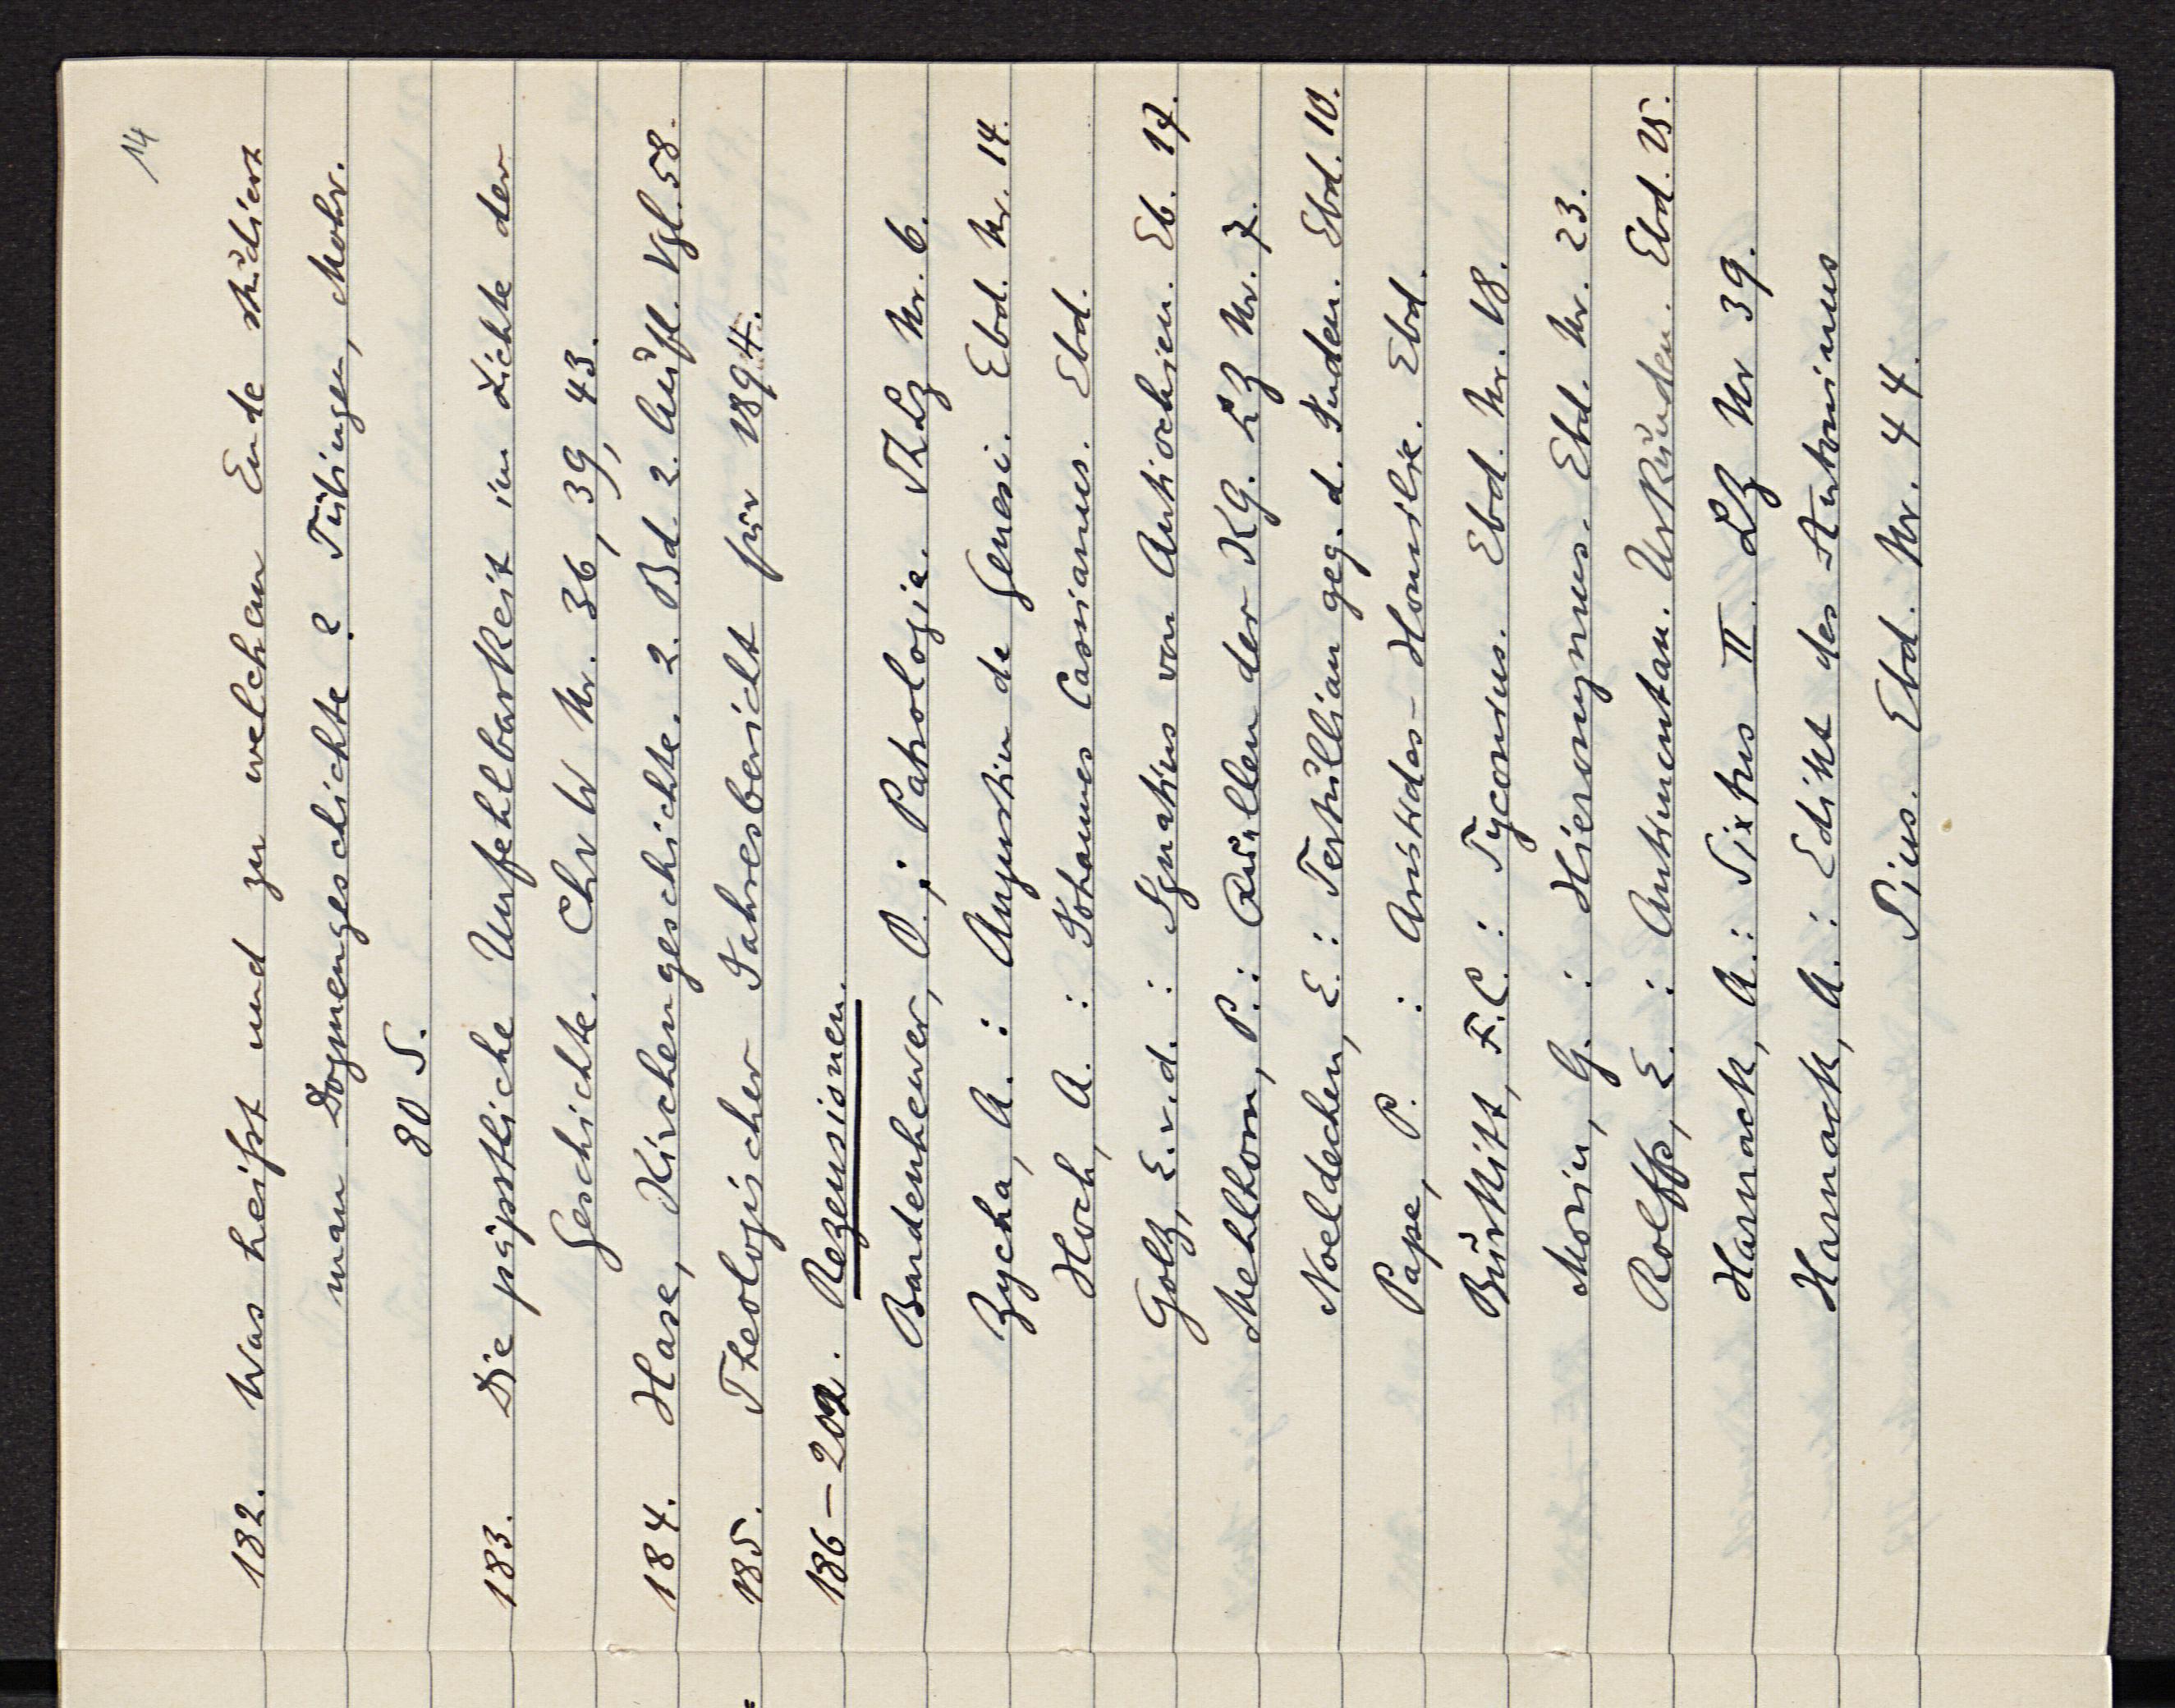 14
182. Was heißt und zu welchem Ende studiert
man Dogmengeschichte? Tübingen, Mohr.
80 S.
183. Die päpstliche Unfehlbarkeit im Lichte der
Geschichte. Chr W Nr. 36, 39, 43.
184. Hase, Kirchengeschichte. 2. Bd. 2. Aufl. Vgl. 58.
185. Theologischer Jahresbericht für 1894.
186–202. Rezensionen.
Bardenhewer, O.; Patrologie. ThLz Nr. 6.
Zycha, A.: Augustin de Genesi. Ebd. Nr. 14.
Hoch, A.: Johannes Cassianus. Ebd.
Goltz, E. v. d.: Ignatius von Antiochien. Eb. 17.
Mehlhorn, P.: Quellen der KG. LZ Nr. 7.
Noeldechen, E.: Tertullian geg. d. Juden. Ebd. 10.
Pape, P.: Aristides-Homilie. Ebd.
Burkitt, F.C.: Tyconius. Ebd. Nr. 18.
Morin, G.: Hieronymus. Ebd. Nr. 23.
Rolffs, E.: Antimontan. Urkunden. Ebd. 25.
Harnack, A.: Sixtus II. LZ Nr 39.
Harnack, A.: Edikt des Antoninus
Pius. Ebd. Nr. 44.